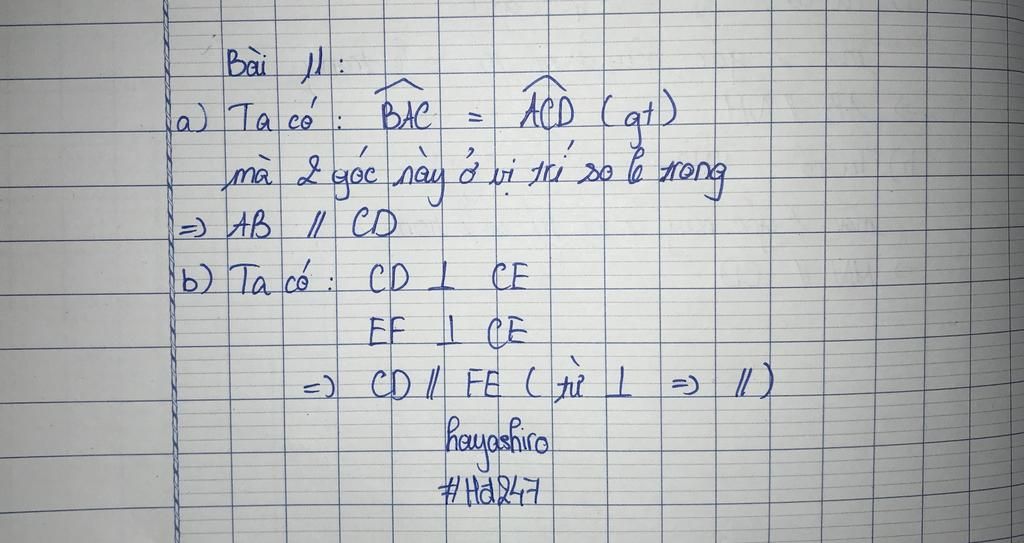 Bài 11:
a) Ta có: \widehat{BAC} = \widehat{ACD} (gt)
mà 2 góc này ở vị trí so le trong
=) AB // CD
b) Ta có: CD ⊥ CE
EF ⊥ CE
=) CD // FE (từ ⊥ =) //)
hayashiro
#Hd247